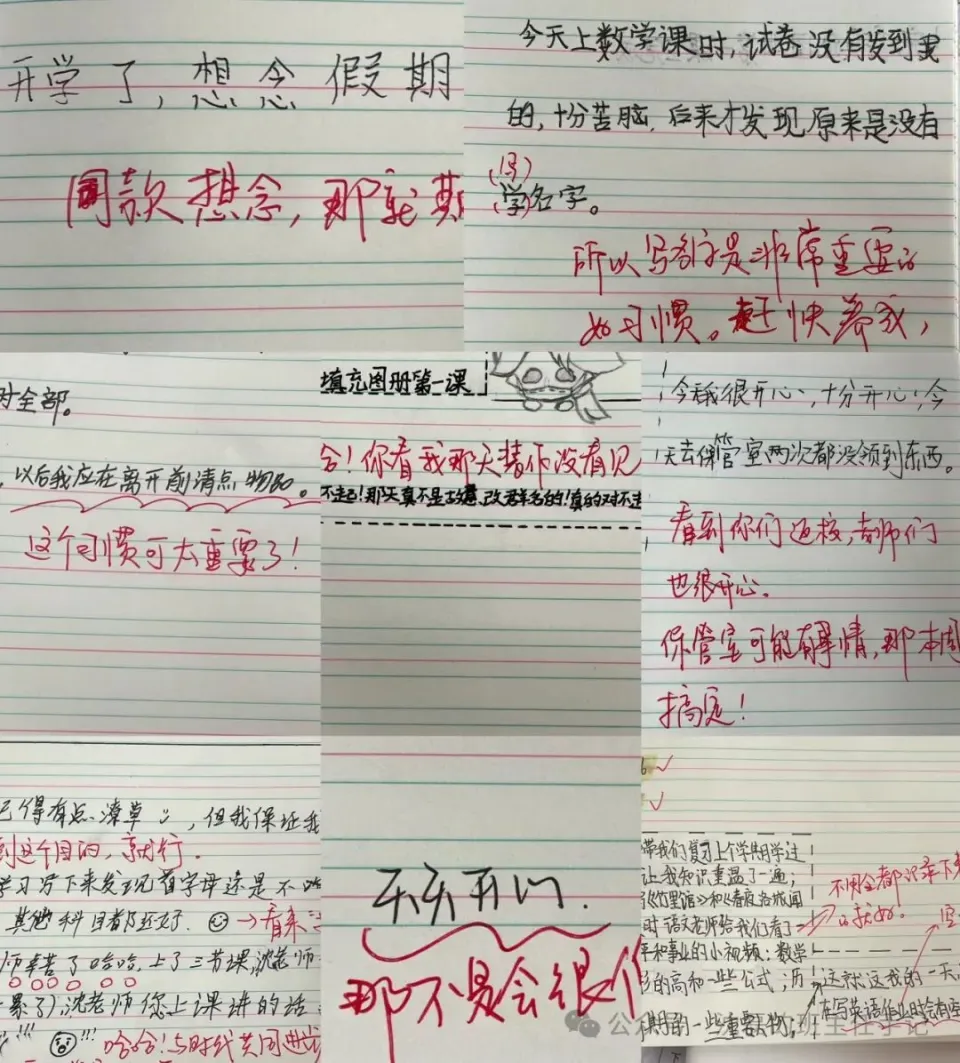 开学了,想念假期
同款想念,那就期
今天上数学课时,试卷没有发到我
的,十分苦脑,后来才发现原来是没有
(写)
学名字。
所以写名字是非常重要的
好习惯。赶快养成,
对全部。
以后我应在离开前清点物品。
这个习惯可太重要了!
填充图册第一课
合!你看我那天装作没有见
不起!那天真不是故意改群名的!真的对不起
今天我很开心,十分开心,今
天去保管室两次都没领到东西。
看到你们返校,老师们
也很开心。
保管室可能有事情,那本周
搞定!
记得有点潦草,但我保证我
到这个目的,就行。
学习写下来发现首字母还是不
其他科目都还好。→看来
师辛苦了哈哈,上了三节课,沈老师
累了),沈老师您上课讲的话
哈哈!与时代共同进
天天开心.
那不是会很
带我们复习上个学期学过
让我知识重温了一遍,
时语文老师给我们看了
和事业的小视频;数学
的高和一些公式;历
期的一些重要
不用全都记录下来
就好。
这就这我的一天
在写英语作业时会有
公众号
班主任手记